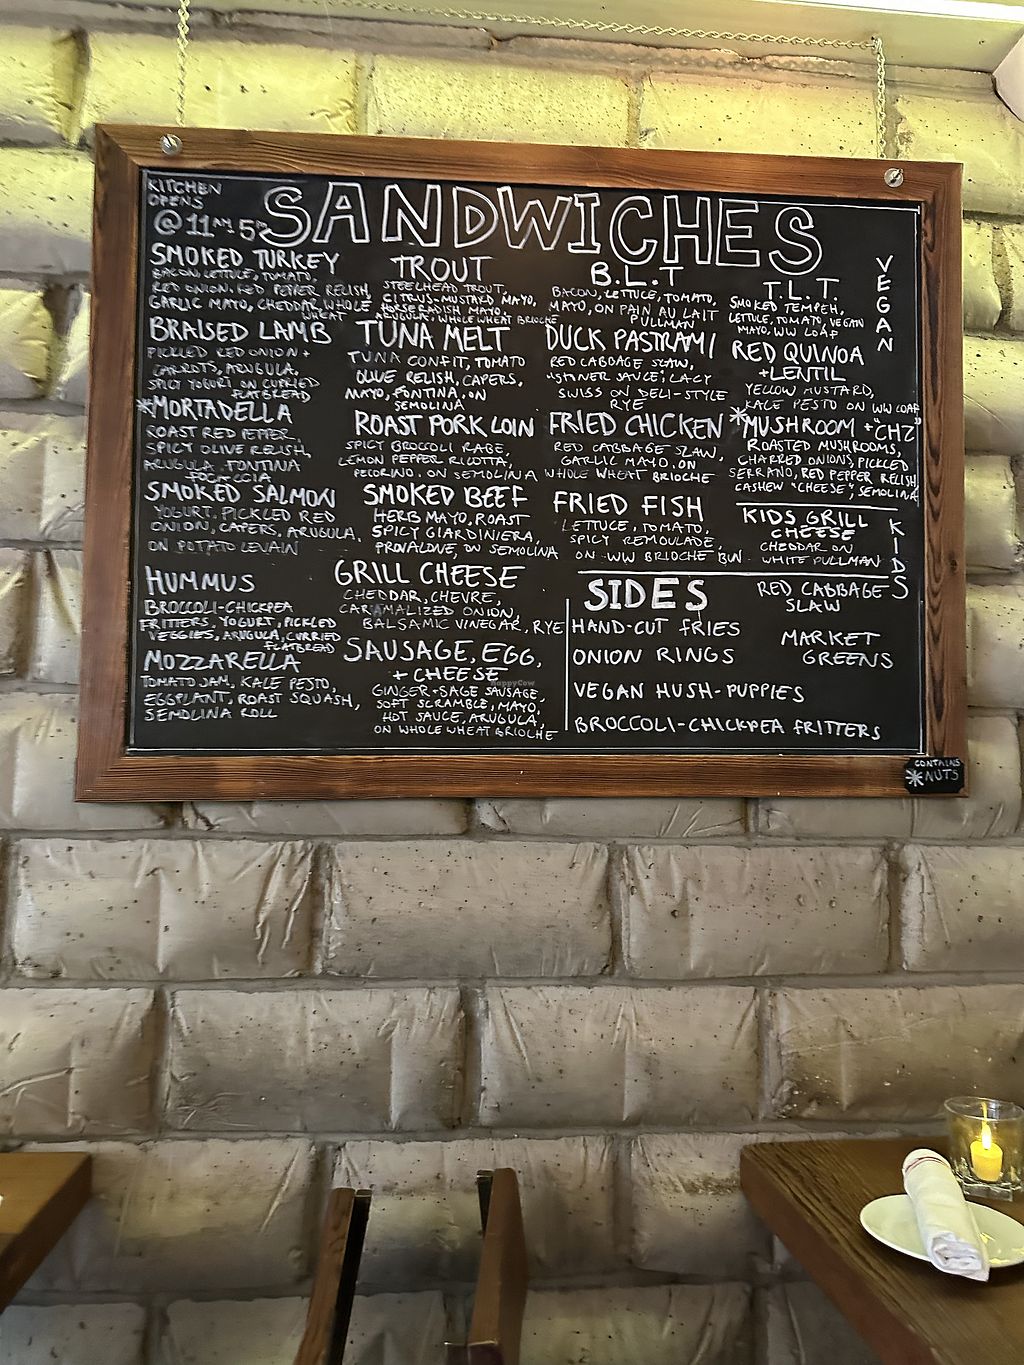 KITCHEN
OPENS
@ 11AM-5PM
SANDWICHES
SMOKED TURKEY
BACON, LETTUCE, TOMATO,
RED ONION-RED PEPPER RELISH,
GARLIC MAYO, CHEDDAR, WHOLE
WHEAT
BRAISED LAMB
PICKLED RED ONION +
CARROTS, ARUGULA,
SPICY YOGURT ON CURRIED
FLATBREAD
*MORTADELLA
ROAST RED PEPPER,
SPICY OLIVE RELISH,
ARUGULA, FONTINA
FOCACCIA
SMOKED SALMON
YOGURT, PICKLED RED
ONION, CAPERS, ARUGULA,
ON POTATO LEVAIN
HUMMUS
BROCCOLI-CHICKPEA
FRITTERS, YOGURT, PICKLED
VEGGIES, ARUGULA, CURRIED
FLATBREAD
MOZZARELLA
TOMATO JAM, KALE PESTO,
EGGPLANT, ROAST SQUASH,
SEMOLINA ROLL
TROUT
STEELHEAD TROUT,
CITRUS-MUSTARD MAYO,
HORSERADISH MAYO,
ARUGULA, WHOLE WHEAT BRIOCHE
TUNA MELT
TUNA CONFIT, TOMATO
OLIVE RELISH, CAPERS,
MAYO, FONTINA, ON
SEMOLINA
ROAST PORK LOIN
SPICY BROCCOLI RABE,
LEMON PEPPER RICOTTA,
PECORINO, ON SEMOLINA
SMOKED BEEF
HERB MAYO, ROAST
SPICY GIARDINIERA,
PROVALONE, ON SEMOLINA
GRILL CHEESE
CHEDDAR, CHEVRE,
CARAMALIZED ONION,
BALSAMIC VINEGAR, RYE
SAUSAGE, EGG,
+ CHEESE
GINGER+SAGE SAUSAGE,
SOFT SCRAMBLE, MAYO,
HOT SAUCE, ARUGULA,
ON WHOLE WHEAT BRIOCHE
B.L.T
BACON, LETTUCE, TOMATO,
MAYO, ON PAIN AU LAIT
PULLMAN
DUCK PASTRAMI
RED CABBAGE SLAW,
SAUCE, LACY
SWISS ON DELI-STYLE
RYE
FRIED CHICKEN
RED CABBAGE SLAW,
GARLIC MAYO, ON
WHOLE WHEAT BRIOCHE
FRIED FISH
LETTUCE, TOMATO,
SPICY REMOULADE,
ON WW BRIOCHE BUN
VEGAN
T.L.T.
SMOKED TEMPEH,
LETTUCE, TOMATO, VEGAN
MAYO, WW LOAF
RED QUINOA
+LENTIL
YELLOW MUSTARD,
KALE PESTO ON WW LOAF
*MUSHROOM +"CHZ"
ROASTED MUSHROOMS,
CHARRED ONIONS, PICKLED
SERRANO, RED PEPPER RELISH,
CASHEW "CHEESE", SEMOLINA
KIDS
KIDS GRILL
CHEESE
CHEDDAR ON
WHITE PULLMAN
SIDES
HAND-CUT FRIES
ONION RINGS
VEGAN HUSH-PUPPIES
BROCCOLI-CHICKPEA FRITTERS
RED CABBAGE
SLAW
MARKET
GREENS
CONTAINS
*NUTS
HappyCow